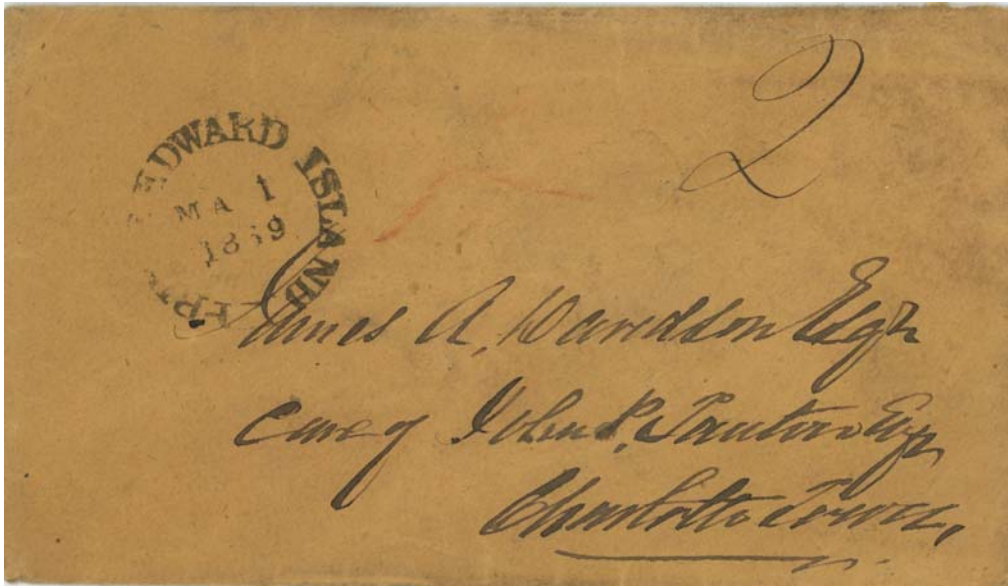 2
PRINCE EDWARD ISLAND
MA 1
1859
James A, Davidson Esqr
care of John P, Tanton Esqr,
Charlotte Town,